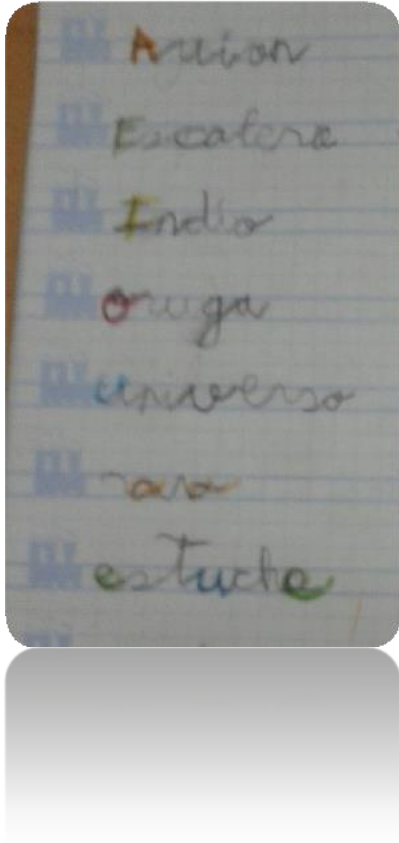 Avion
Escalera
Indio
Oruga
universo
estuche